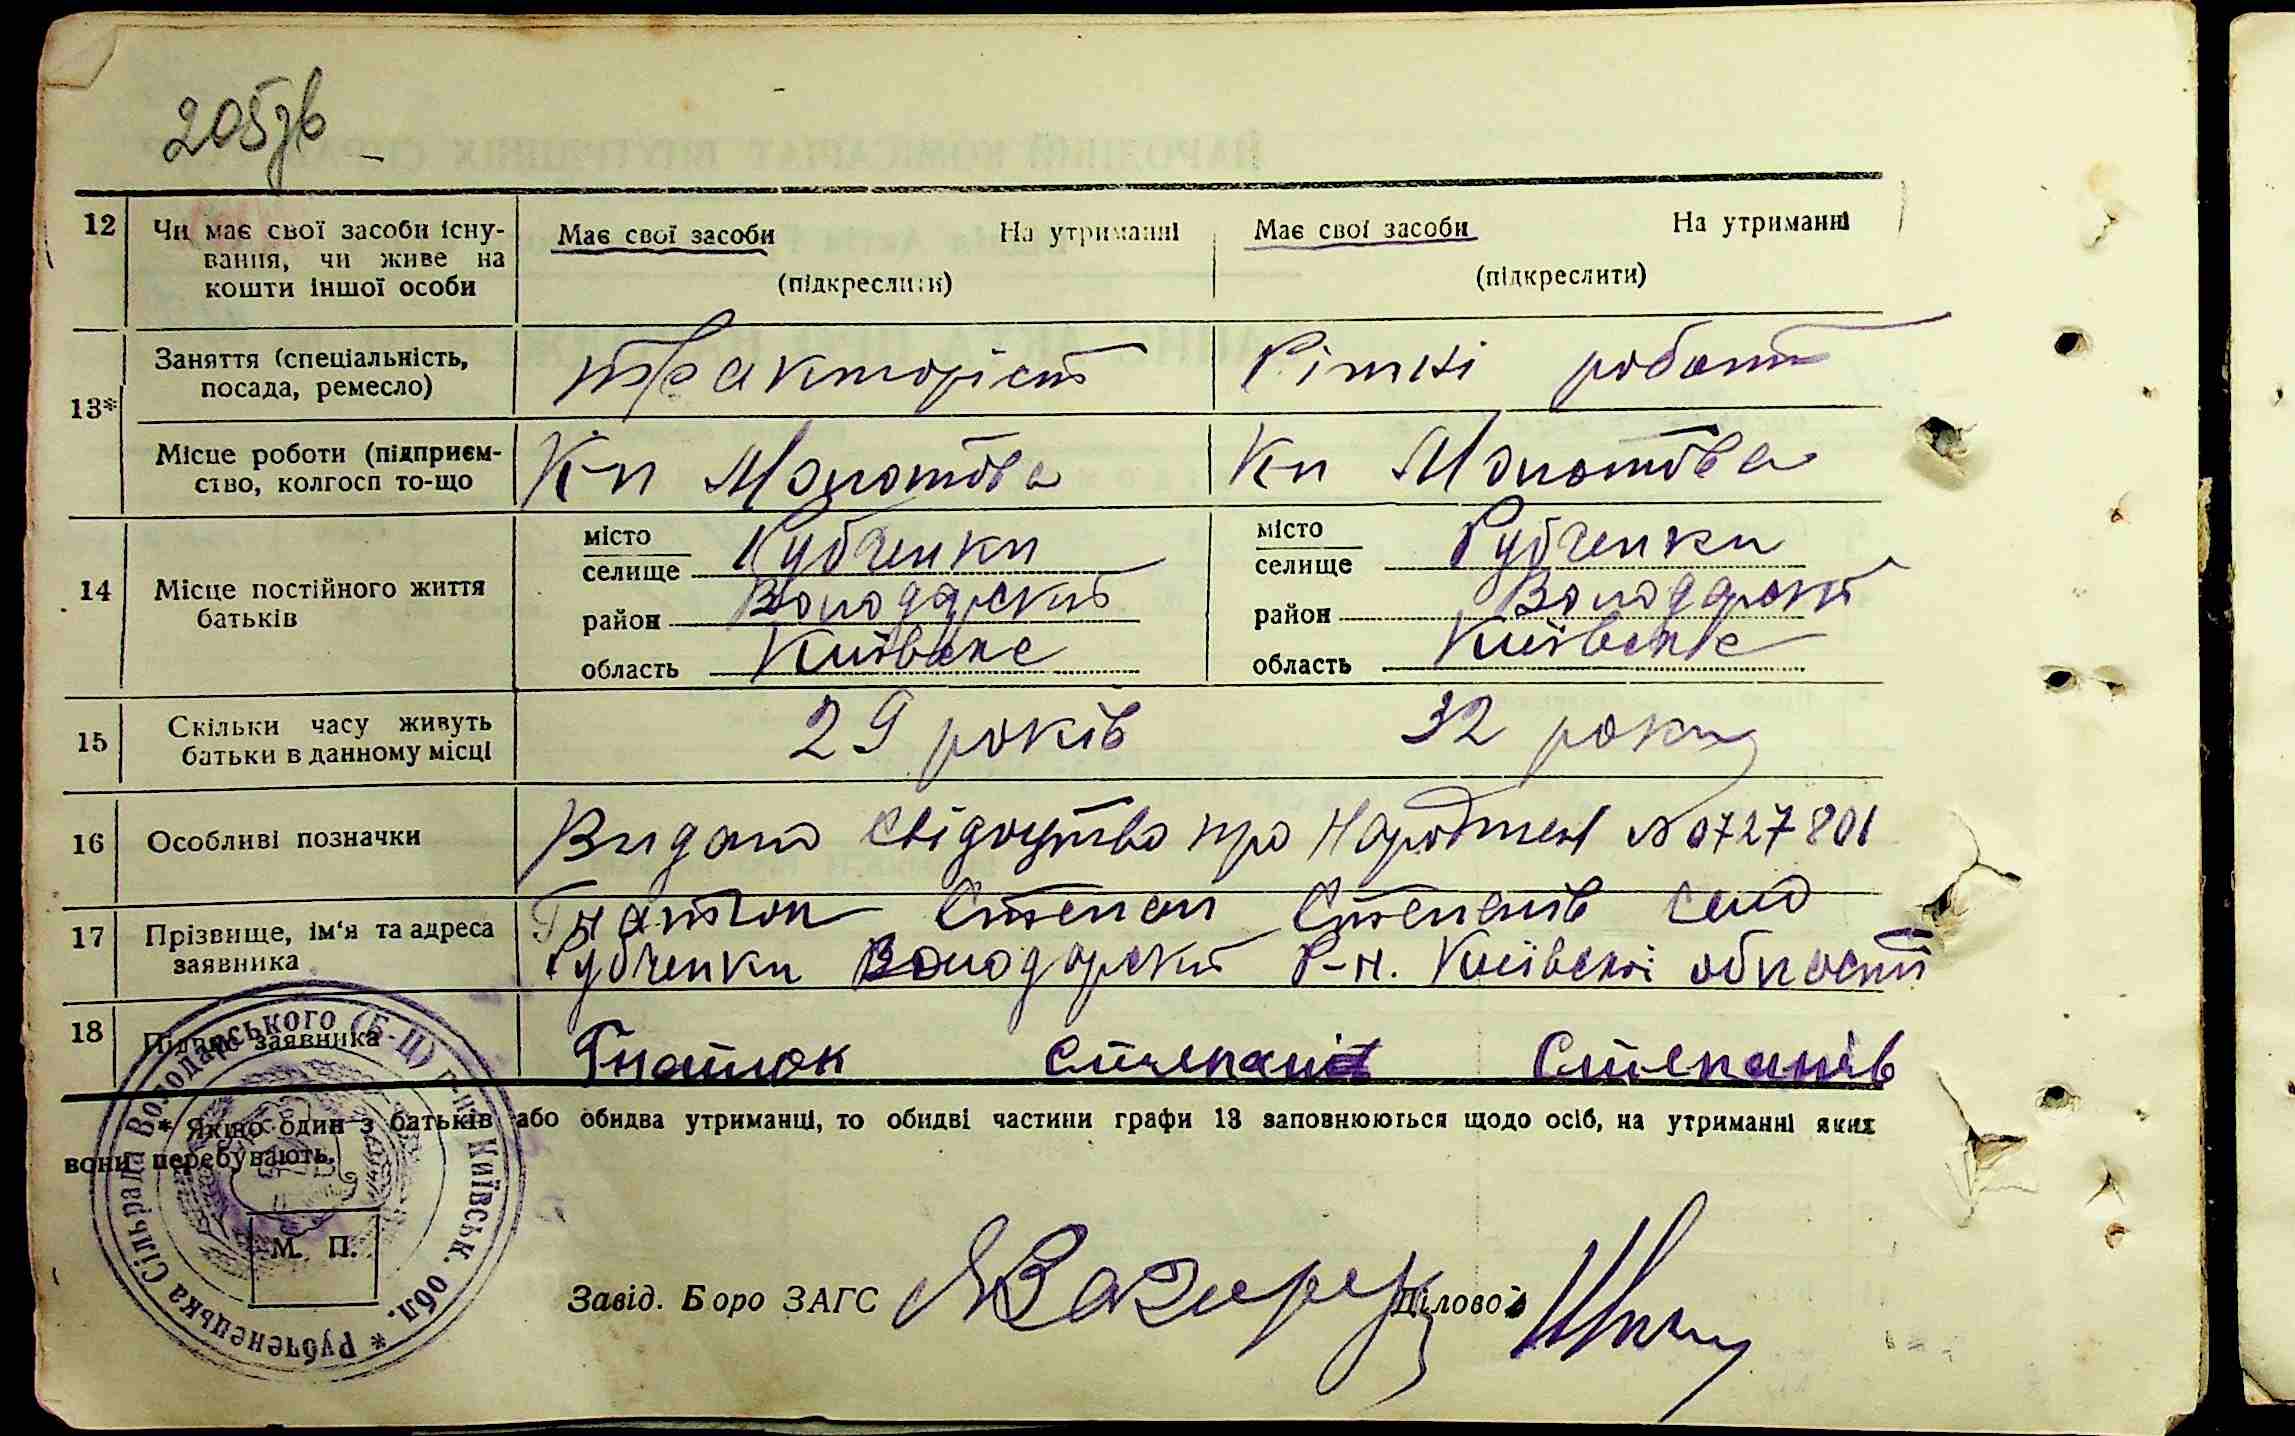 205зв
12 Чи має свої засоби існу-
вання, чи живе на
кошти іншої особи
Має свої засоби На утриманні
(підкреслити)
Має свої засоби На утриманні
(підкреслити)
13*
Заняття (спеціальність,
посада, ремесло)
тракторіст
Різні робот
Місце роботи (підприєм-
ство, колгосп то-що
К-п Молотова
К-п Молотова
14 Місце постійного життя
батьків
місто
селище Рубченки
район Володарский
область Київське
місто
селище Рубченки
район Володарский
область Київське
15 Скільки часу живуть
батьки в данному місці
29 років
32 роки
16 Особливі позначки
Видано свідоцтво про Народжен № 0727801
17 Прізвище, ім'я та адреса
заявника
Гнатюк Степан Степанів село
Рубченки Володарский Р-н. Київскої области
18 Підпис заявника
Гнатюк Степан Степанів
* Якщо один з батьків або обидва утриманці, то обидві частини графи 13 заповнюються щодо осіб, на утриманні яких
вони перебувають.
М. П.
Рубченецька Сільрада Володарського (Б-Ц) р-ну Київськ. обл. *
Завід. Боро ЗАГС
Діловод